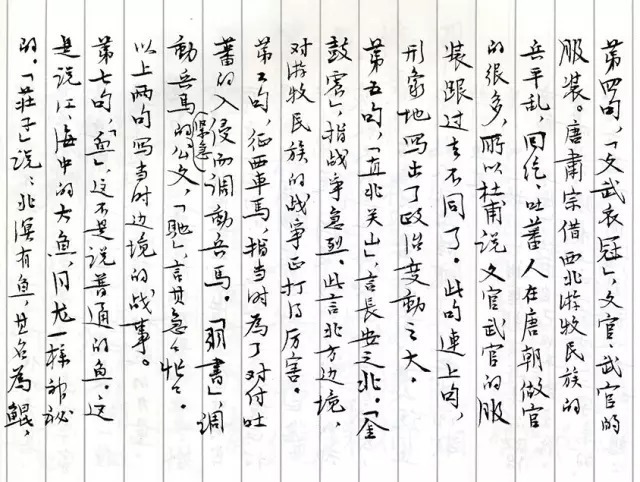 第四句，「文武衣冠」，文官、武官的
服装。唐肃宗借西北游牧民族的
兵平乱，回纥、吐蕃人在唐朝做官
的很多，所以杜甫说文官武官的服
装跟过去不同了。此句連上句，
形象地写出了政治变動之大。
第五句，「直北关山」，言長安之北。「金
鼓震」，指战争急烈。此言北方边境，
对游牧民族的战争正打得厉害。
第六句，征西車馬，指当时為了对付吐
蕃的入侵而调動兵馬。「羽書」，调
動兵馬的緊急公文，「馳」，言其急急忙忙。
以上两句写当时边境的战事。
第七句，「魚」，这不是说普通的魚。这
是说江、海中的大魚，同龙一樣神秘
的。「莊子」说：北溟有魚，其名為鯤，